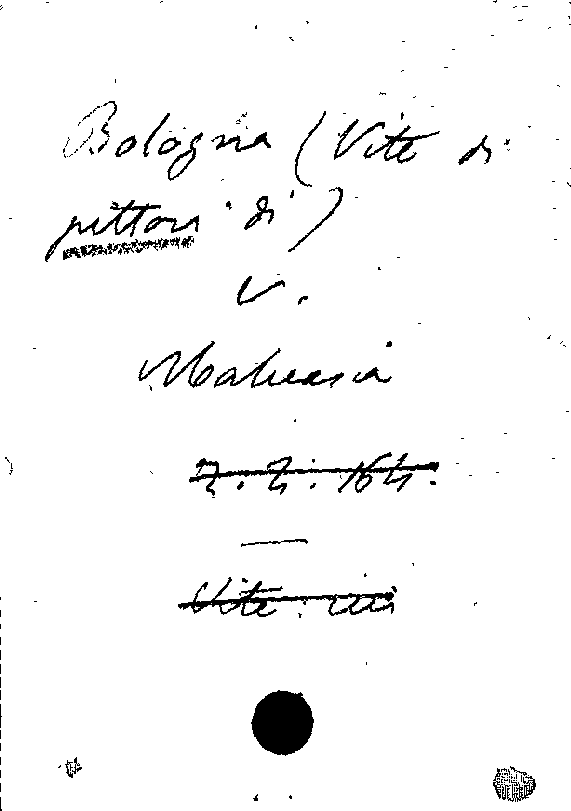 Bologna (Vite di
pittori di)
V.
Malvasia
Z. Z. 164.
Vite. iiii